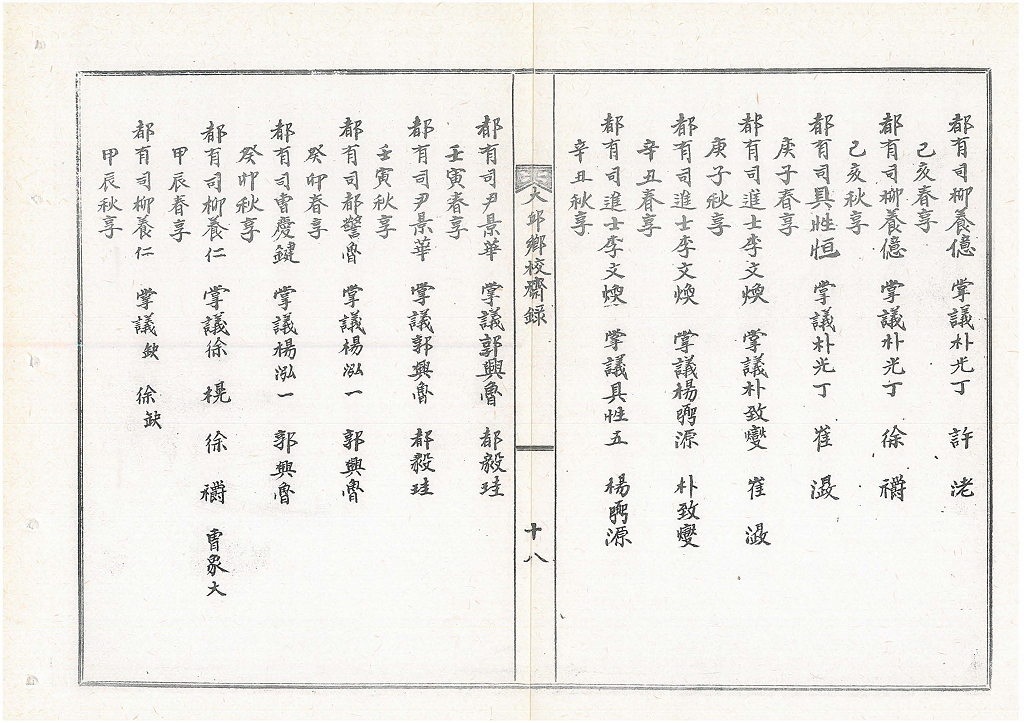 都有司柳養億 掌議朴光丁 許
己亥春享
都有司柳養億 掌議朴光丁 徐
己亥秋享
都有司具性恒 掌議朴光丁 崔
庚子春享
都有司進士李文煥 掌議朴致燮 崔
庚子秋享
都有司進士李文煥 掌議楊聘源 朴致燮
辛丑春享
都有司進士李文煥 掌議具性五 楊聘源
辛丑秋享
大邱鄕校齋錄
十八
都有司尹景華 掌議郭興魯 都毅珪
壬寅春享
都有司尹景華 掌議郭興魯 都毅珪
壬寅秋享
都有司都警魯 掌議楊泓一 郭興魯
癸卯春享
都有司曺慶鍵 掌議楊泓一 郭興魯
癸卯秋享
都有司柳養仁 掌議徐榥 徐 曺象大
甲辰春享
都有司柳養仁 掌議缺 徐缺
甲辰秋享